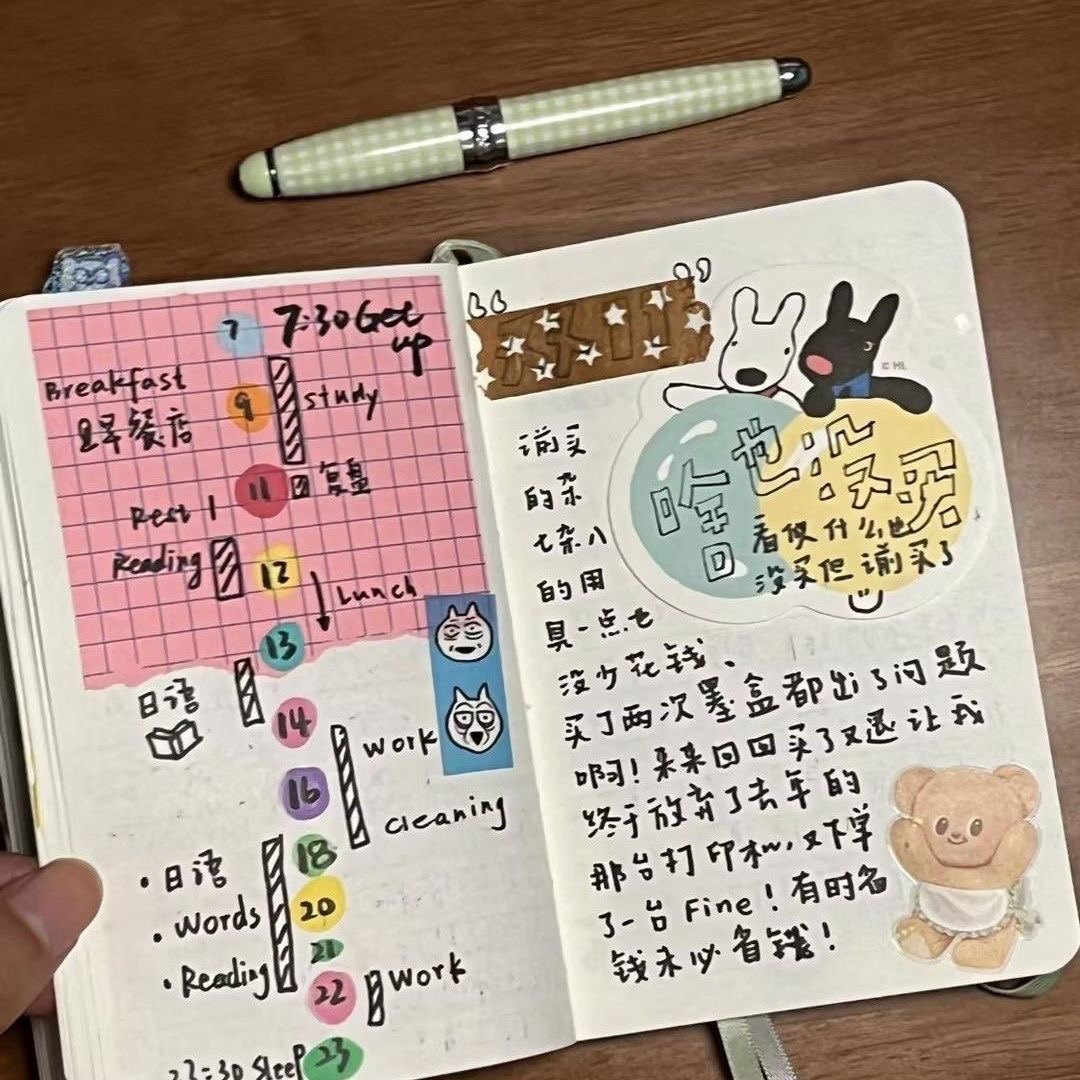 7 7:30 Get
up
Breakfast
9 study
早餐店
11 复盘
Rest 1
Reading 12
Lunch
13
日语
14
work
16
cleaning
18
· 日语
· words 20
21
· Reading 22 work
23:30 Sleep 23
© HL
啥也没买
看似什么也
没买但谢买了
谢买
的杂
七杂八
的用
具一点也
没少花钱、
买了两次墨盒都出了问题
啊！来来回回买了又退让我
终于放弃了去年的
那台打印机,又下单
了一台 Fine！有时省
钱未必省钱！